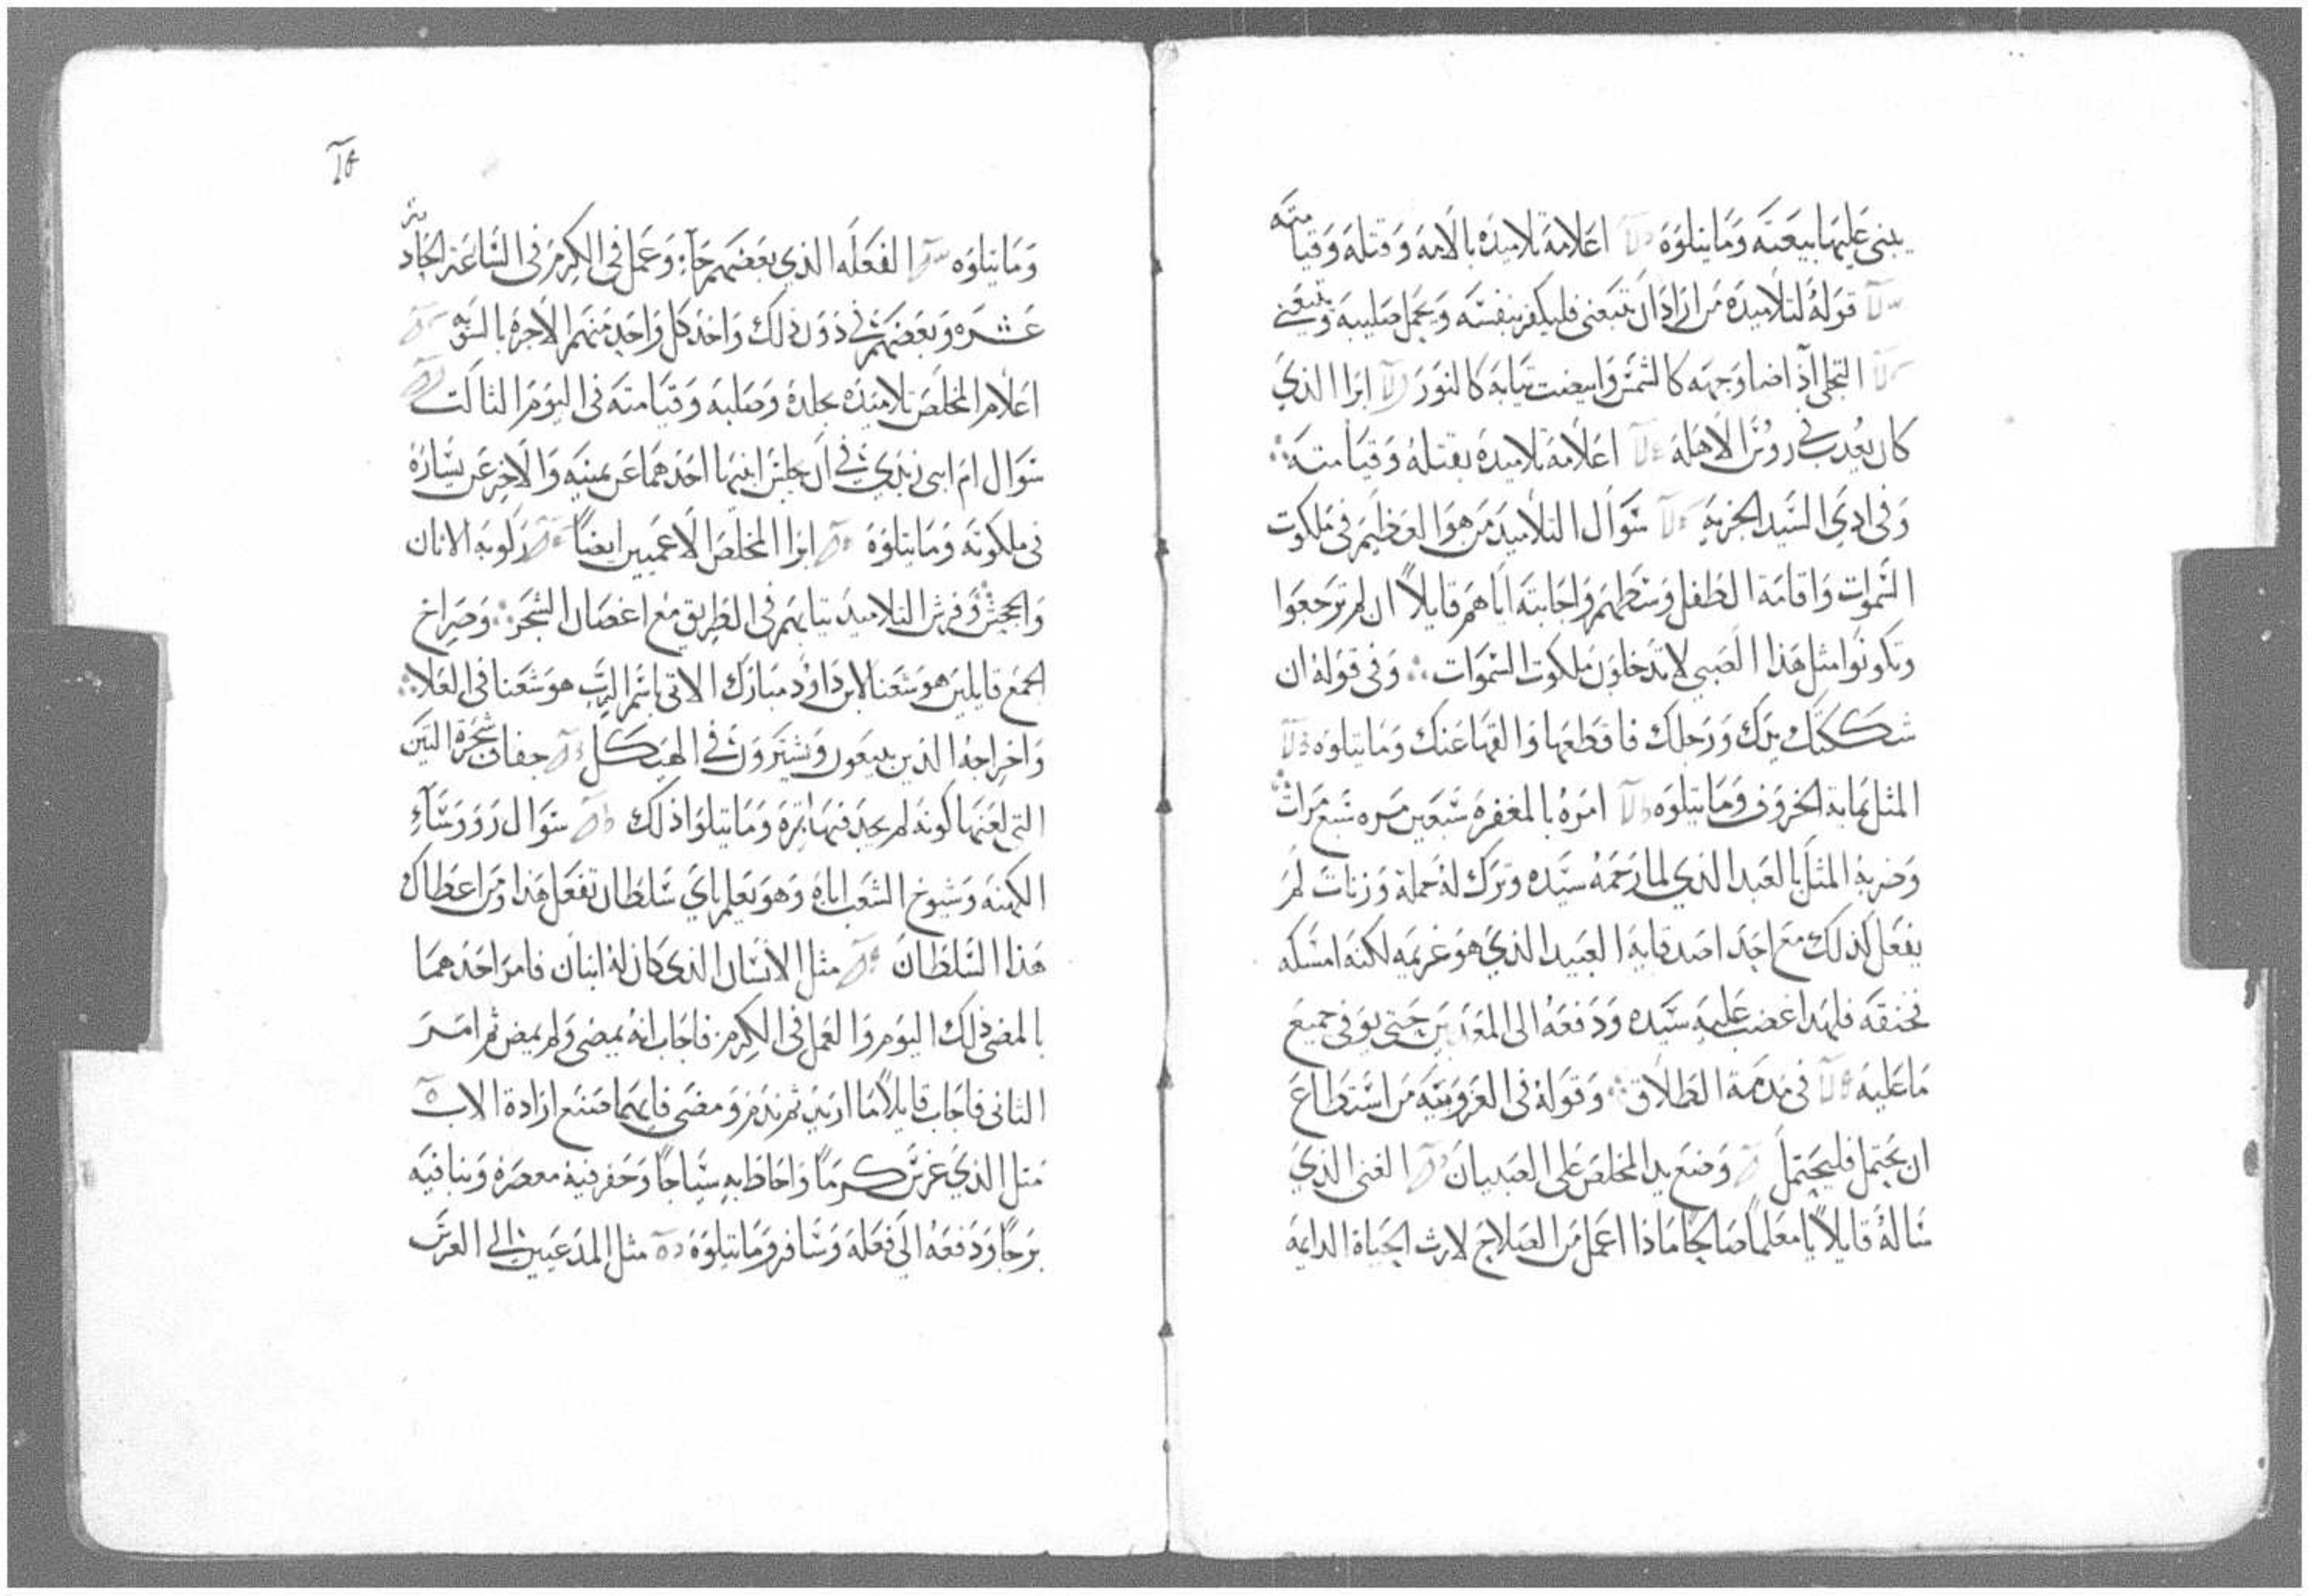 يبنى عليها بيعته وما يتلوه اعلامه تلاميده بالامه وقتله وقيامته
قوله لتلاميده من اراد ان يتبعنى فليكفر بنفسه ويحمل صليبه ويتبعني
التجلى اذ اضا وجهه كالشمس وابيضت تيابه كالنور ابرا الذي
كان يعدب في روس الاهله اعلامه تلاميده بقتله وقيامته
وفى ادي السيد الجزيه سوال التلاميد من هوا العظيم في ملكوت
السموات واقامة الطفل وسطهم واجابته اياهم قايلا ان لم ترجعوا
وتكونوا مثل هذا الصبي لا تدخلون ملكوت السموات وفى قوله ان
شككتك يدك ورجلك فاقطعها والقها عنك وما يتلوه
المثل بماية الخروف وما يتلوه امره بالمغفره سبعين مره سبع مرات
وضربه المثل بالعبد الذي لما رحمه سيده وترك له جملة وزنات لم
يفعل كذلك مع احد اصدقايه العبيد الذي هو غريمه لكنه امسكه
فخنقه فلهدا غضب عليه سيده ودفعه الى المعذبين حتى يوفى جميع
ما عليه فى مذمة الطلاق وقوله فى العزوبيه من استطاع
ان يحتمل فليحتمل وضع يد المخلص على الصبيان الغنى الذي
ساله قايلا يا معلما صالحا ماذا اعمل من الصلاح لارث الحياة الدايمه
وما يتلوه الفعله الذي بعضهم جاء وعمل في الكرم في الساعة الحادية
عشره وبعضهم في دون ذلك واخد كل واحد منهم الاجره بالسويه
اعلام المخلص تلاميده بجلده وصلبه وقيامته فى اليوم الثالت
سوال ام ابني زبدي في ان يجلس ابنيها احدهما عن يمينه والاخر عن يساره
في ملكوته وما يتلوه ابرا المخلص الاعميين ايضا ركوبه الاتان
والجحش وفرش التلاميد تيابهم فى الطريق مع اغصان الشجر وصراخ
الجمع قايلين هوشعنا لابن داود مبارك الاتي باسم الرب هوشعنا فى العلا
واخراجه الذين يبيعون ويشترون في الهيكل جفاف شجرة التين
التى لعنها كونه لم يجد فيها تمره وما يتلوا ذلك سوال روساء
الكهنه وشيوخ الشعب اياه وهو يعلم باي سلطان تفعل هذا ومن اعطاك
هذا السلطان مثل الانسان الذي كان له ابنان فامر احدهما
بالمضي ذلك اليوم والعمل فى الكرم فاجاب انه يمضى ولم يمض ثم امر
الثانى فاجاب قايلا ما اريد ثم ندم ومضى فايهما صنع ارادة الاب
مثل الذي غرس كرما واحاط به سياجا وحفر فيه معصره وبنا فيه
برجا ودفعه الى فعله وسافر وما يتلوه مثل المدعيين الى العرس